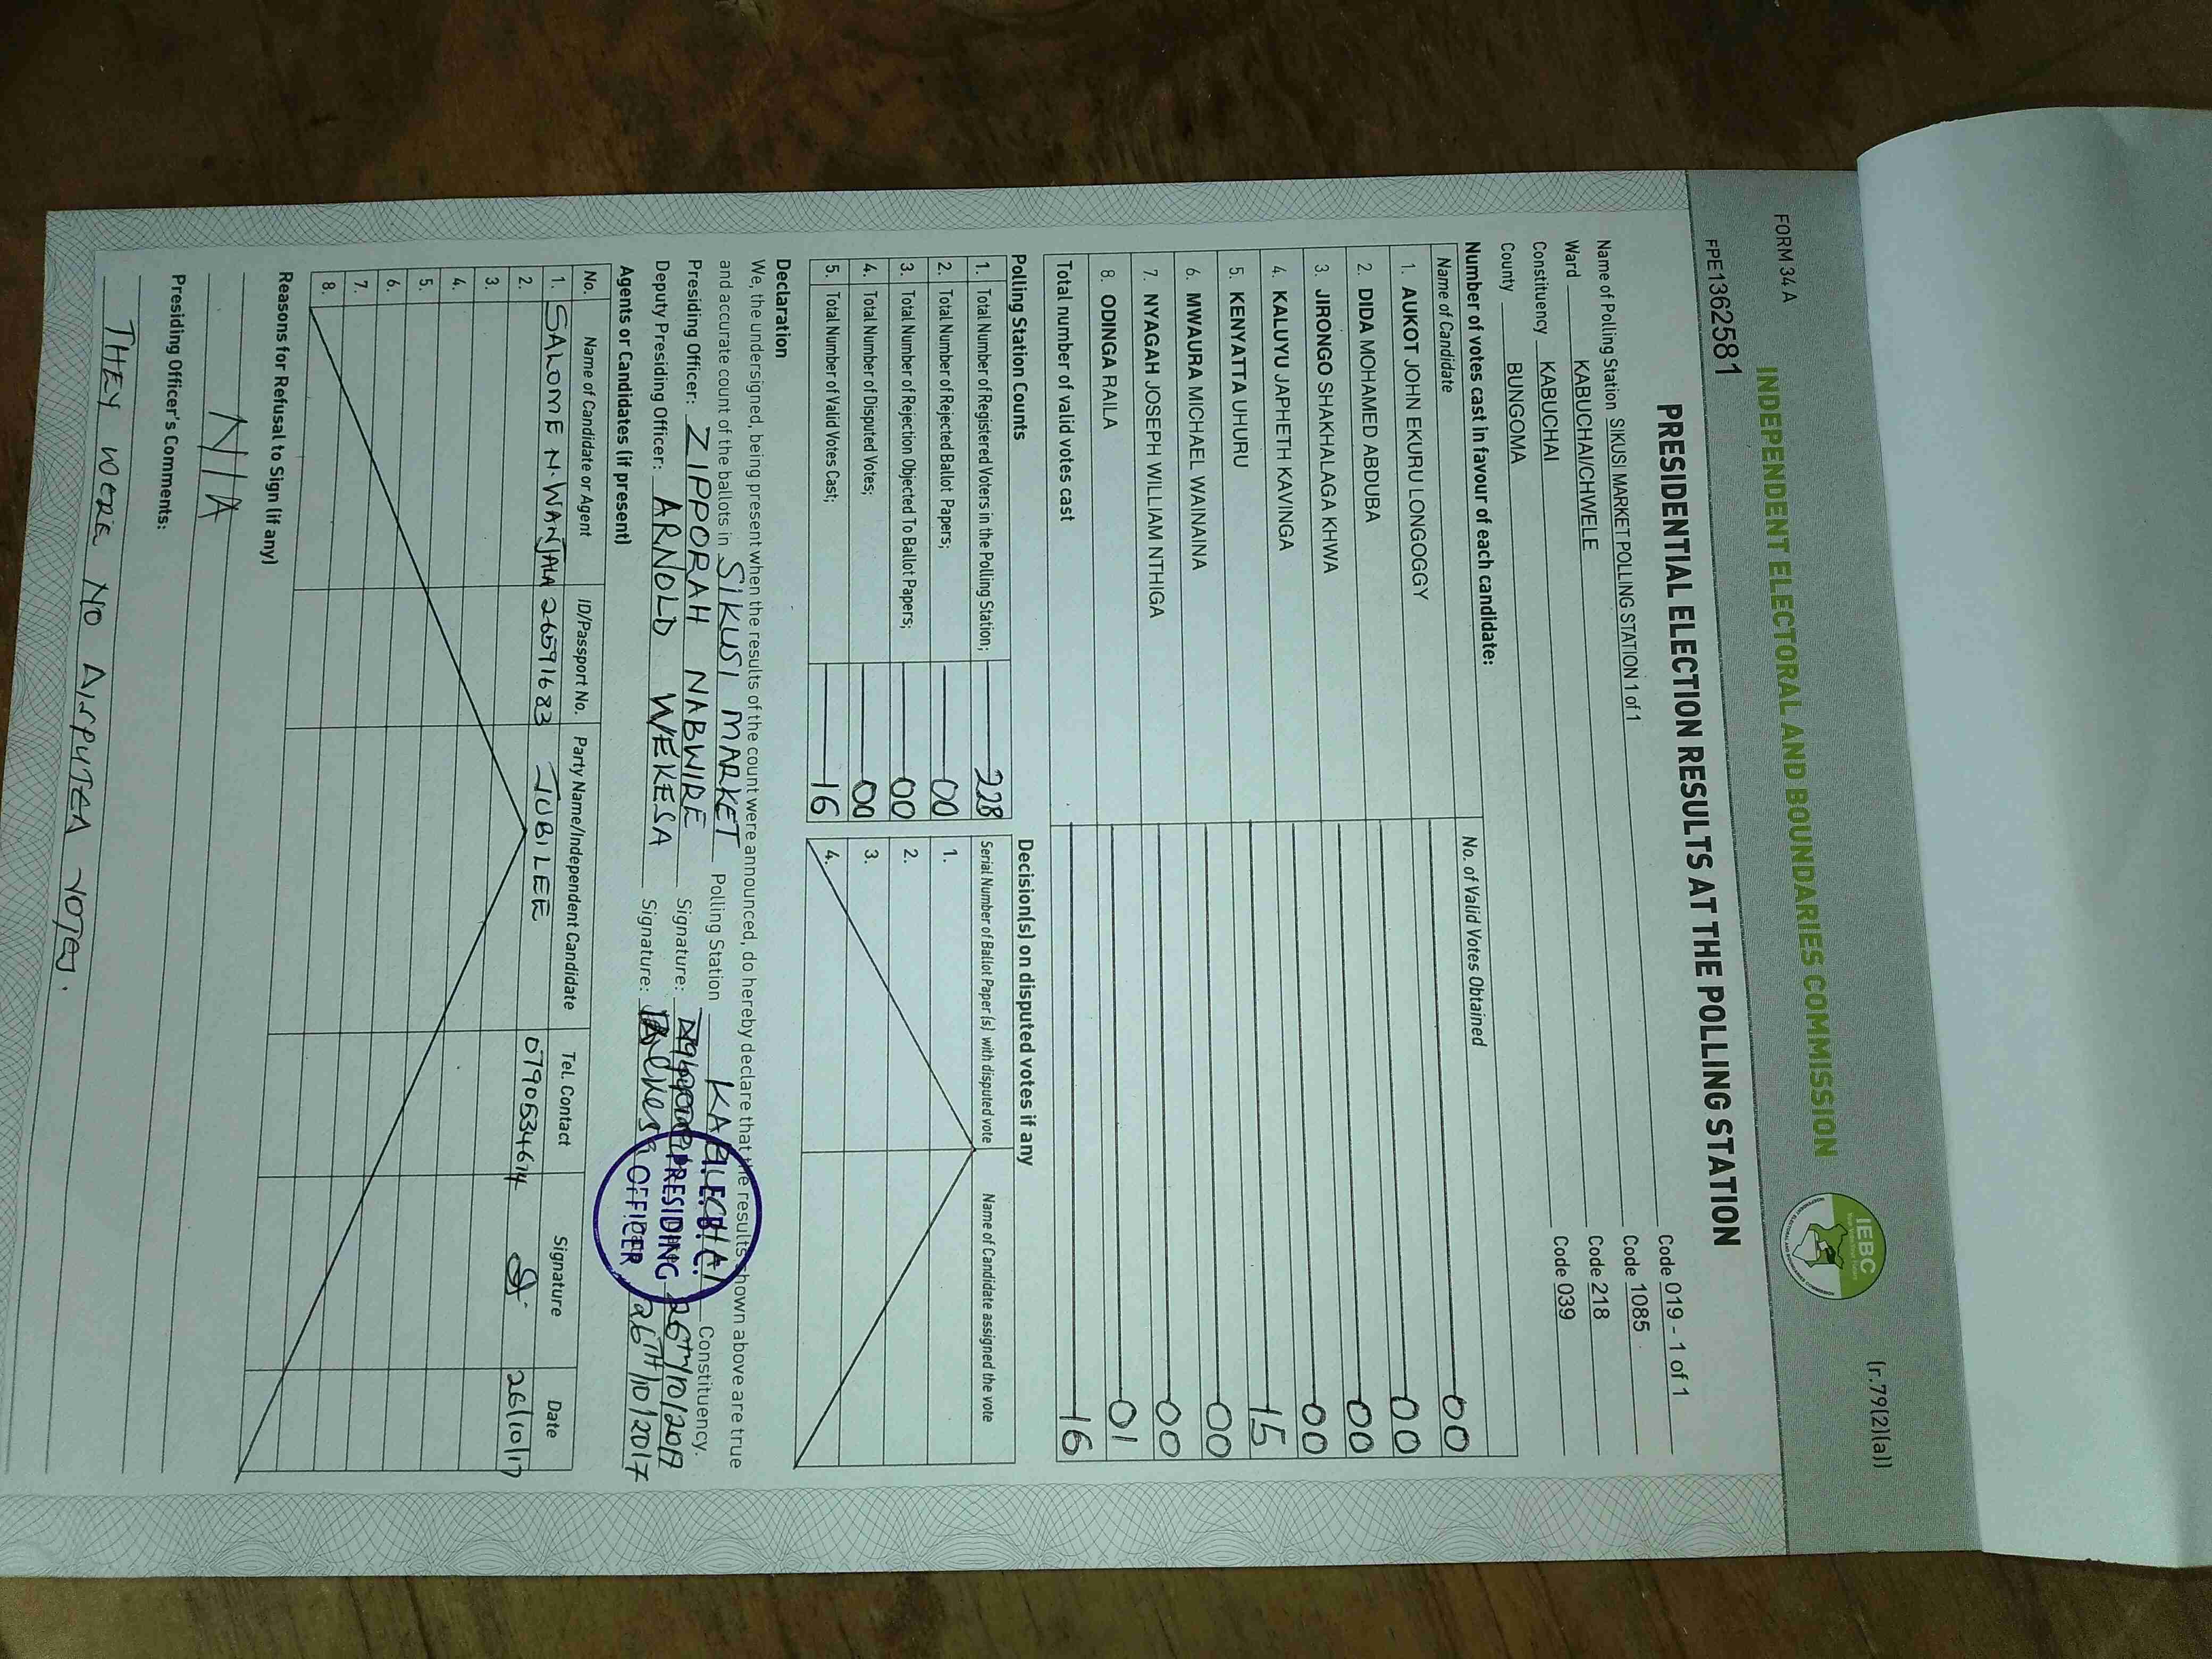 (r.79(2)(a))
FORM 34 A
INDEPENDENT ELECTORAL AND BOUNDARIES COMMISSION
IEBC
FPE1362581
PRESIDENTIAL ELECTION RESULTS AT THE POLLING STATION
Name of Polling Station SIKUSI MARKET POLLING STATION 1 of 1 Code 019 - 1 of 1
Ward KABUCHAI/CHWELE Code 1085
Constituency KABUCHAI Code 218
County BUNGOMA Code 039
Number of votes cast in favour of each candidate:
Name of Candidate No. of Valid Votes Obtained
1. AUKOT JOHN EKURU LONGOGGY 00
2. DIDA MOHAMED ABDUBA 00
3. JIRONGO SHAKHALAGA KHWA 00
4. KALUYU JAPHETH KAVINGA 00
5. KENYATTA UHURU 15
6. MWAURA MICHAEL WAINAINA 00
7. NYAGAH JOSEPH WILLIAM NTHIGA 00
8. ODINGA RAILA 01
Total number of valid votes cast 16
Polling Station Counts Decision(s) on disputed votes if any
1. Total Number of Registered Voters in the Polling Station; 228 Serial Number of Ballot Paper(s) with disputed vote Name of Candidate assigned the vote
2. Total Number of Rejected Ballot Papers; 00 1.
3. Total Number of Rejection Objected To Ballot Papers; 00 2.
4. Total Number of Disputed Votes; 00 3.
5. Total Number of Valid Votes Cast; 16 4.
Declaration
We, the undersigned, being present when the results of the count were announced, do hereby declare that the results shown above are true
and accurate count of the ballots in SIKUSI MARKET Polling Station KABUCHAI Constituency.
Presiding Officer: ZIPPORAH NABWIRE Signature: 26TH/10/2017
Deputy Presiding Officer: ARNOLD WEKESA Signature: 26TH/10/2017
I.E.B.C.
PRESIDING
OFFICER
Agents or Candidates (if present)
No. Name of Candidate or Agent ID/Passport No. Party Name/Independent Candidate Tel. Contact Signature Date
1. SALOME N. WANJALA 26591683 JUBILEE 0790534614 26/10/17
2.
3.
4.
5.
6.
7.
8.
Reasons for Refusal to Sign (if any)
N/A
Presiding Officer's Comments:
THEY WERE NO DISPUTED VOTES.